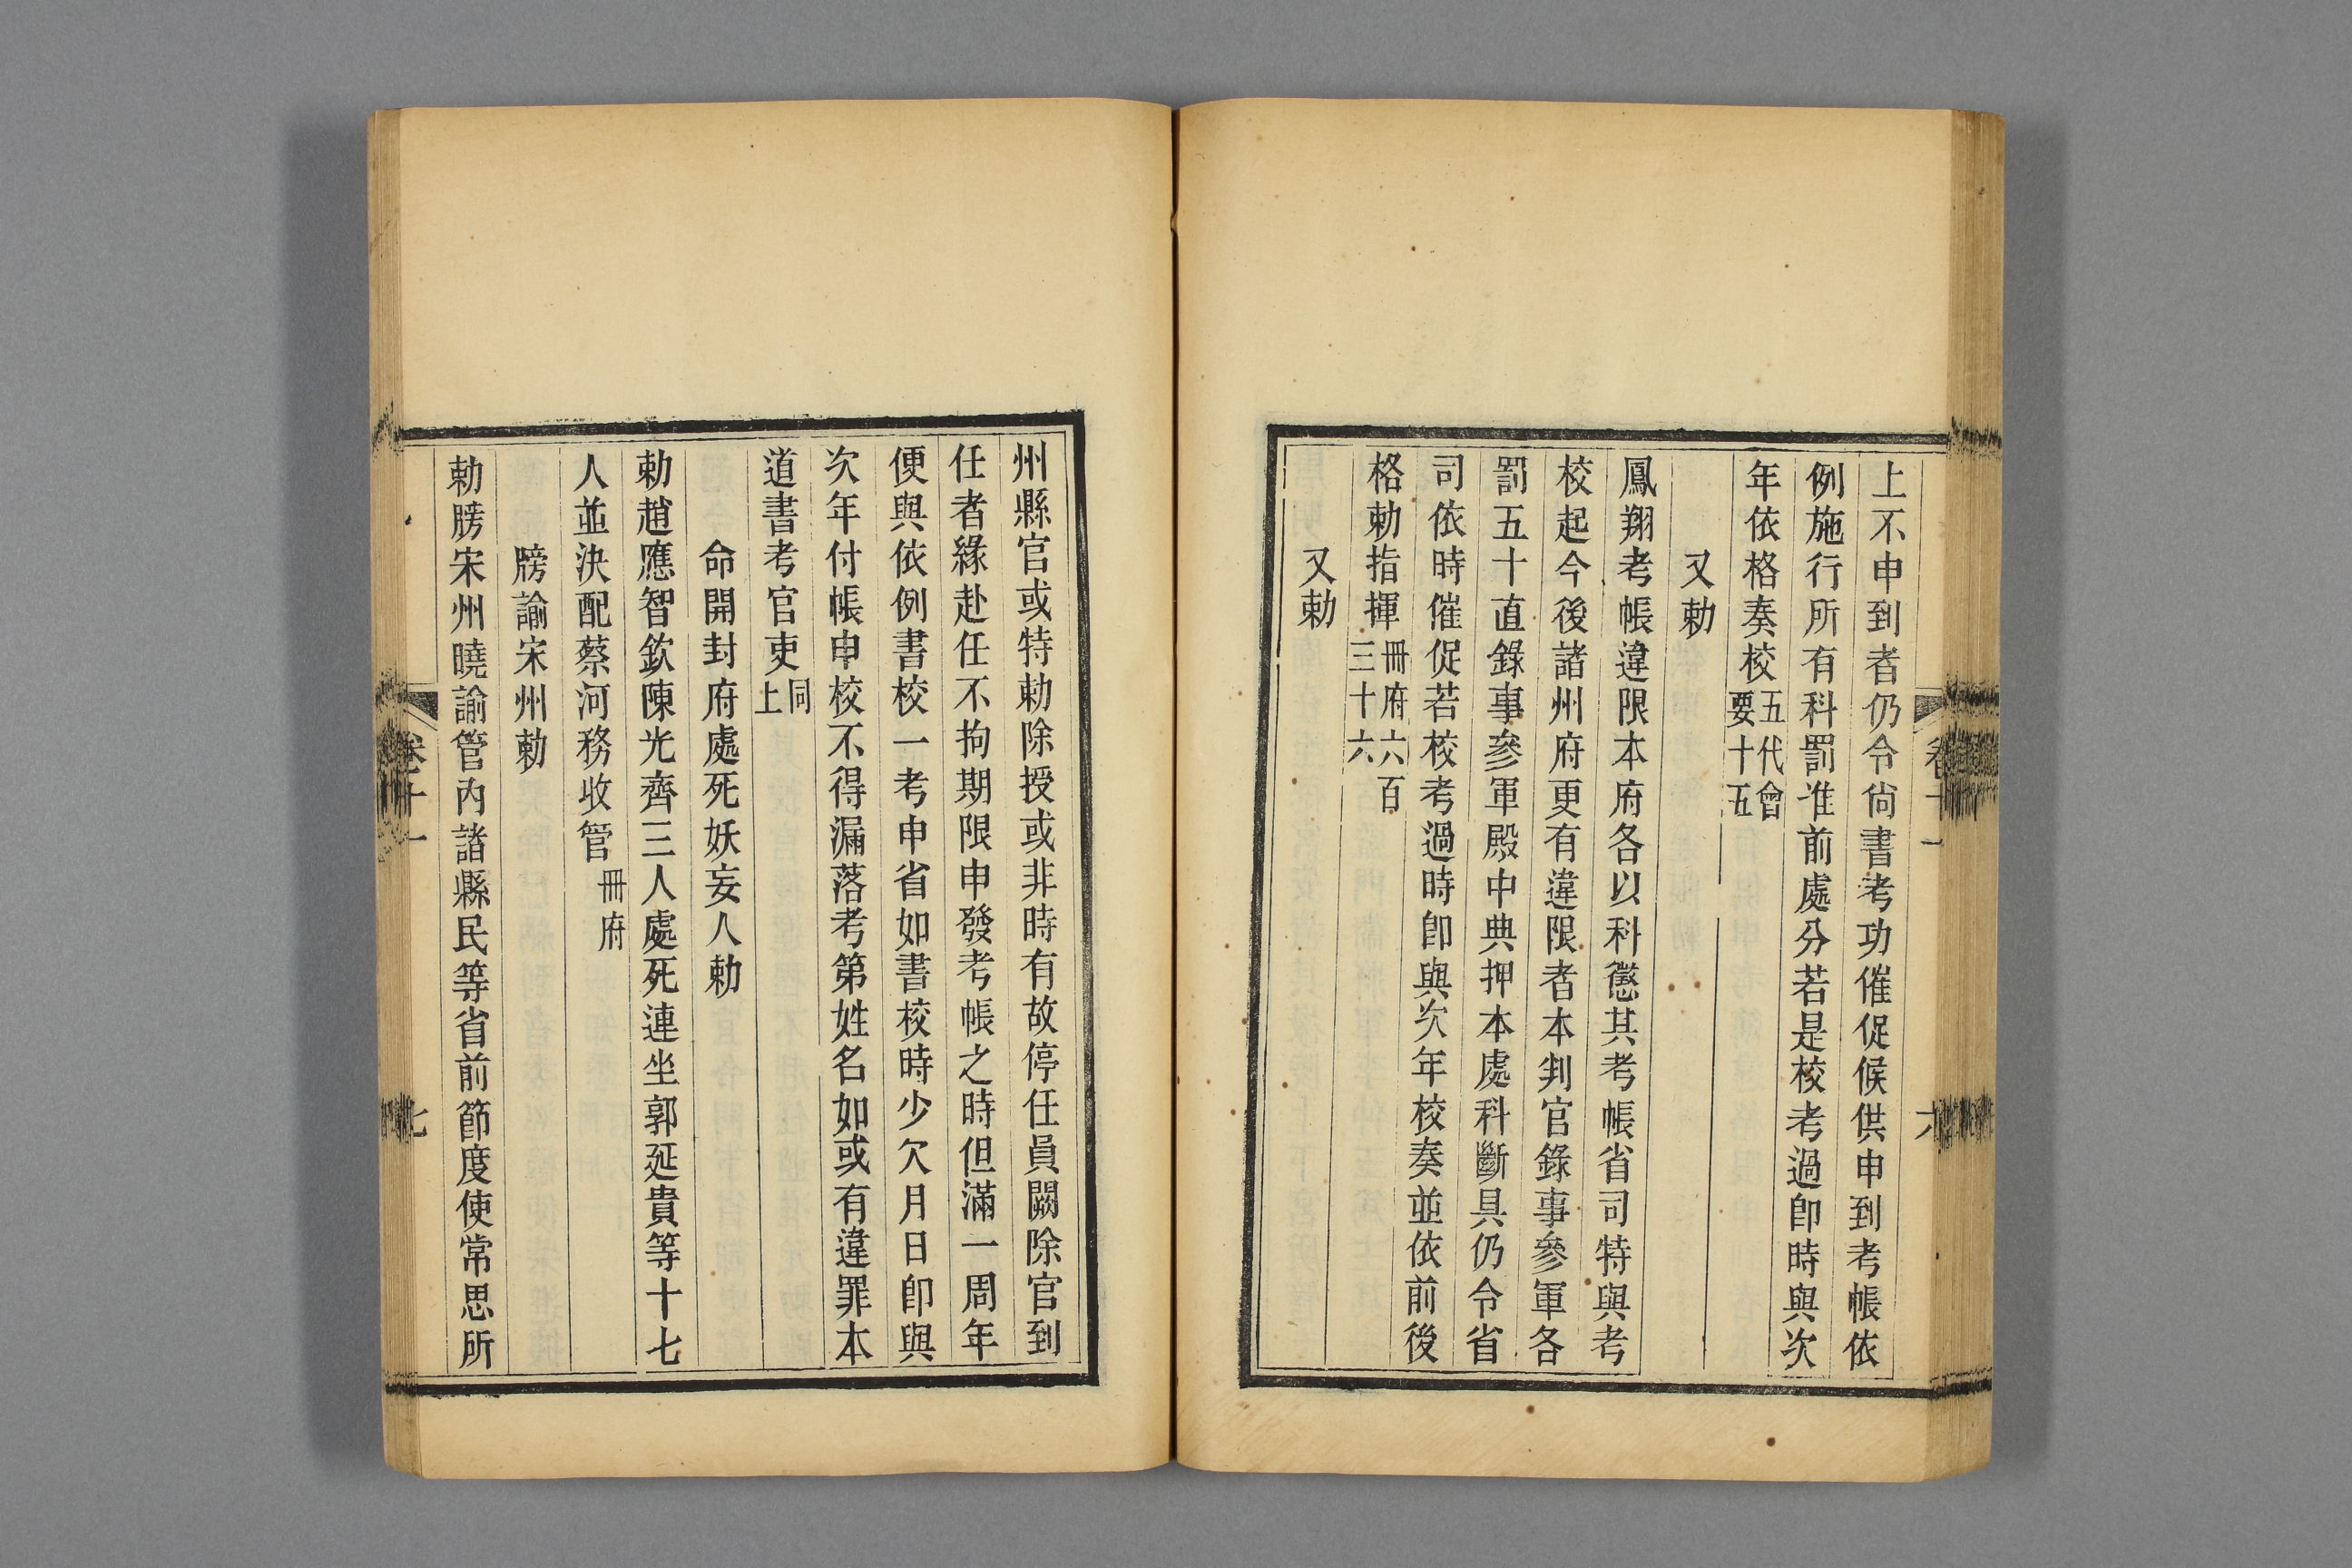 上不申到者仍令尙書考功催促候供申到考帳依
例施行所有科罰准前處分若是校考過卽時與次
年依格奏校五代會要十五
又勅
鳳翔考帳違限本府各以科懲其考帳省司特與考
校起今後諸州府更有違限者本判官錄事參軍各
罰五十直錄事參軍殿中典押本處科斷具仍令省
司依時催促若校考過時卽與次年校奏並依前後
格勅指揮冊府六百三十六
又勅
州縣官或特勅除授或非時有故停任員闕除官到
任者緣赴任不拘期限申發考帳之時但滿一周年
便與依例書校一考申省如書校時少欠月日卽與
次年付帳申校不得漏落考第姓名如或有違罪本
道書考官吏同上
命開封府處死妖妄人勅
勅趙應智欽陳光齊三人處死連坐郭延貴等十七
人並決配蔡河務收管冊府
牓諭宋州勅
勅牓宋州曉諭管內諸縣民等省前節度使常思所
卷十一
七